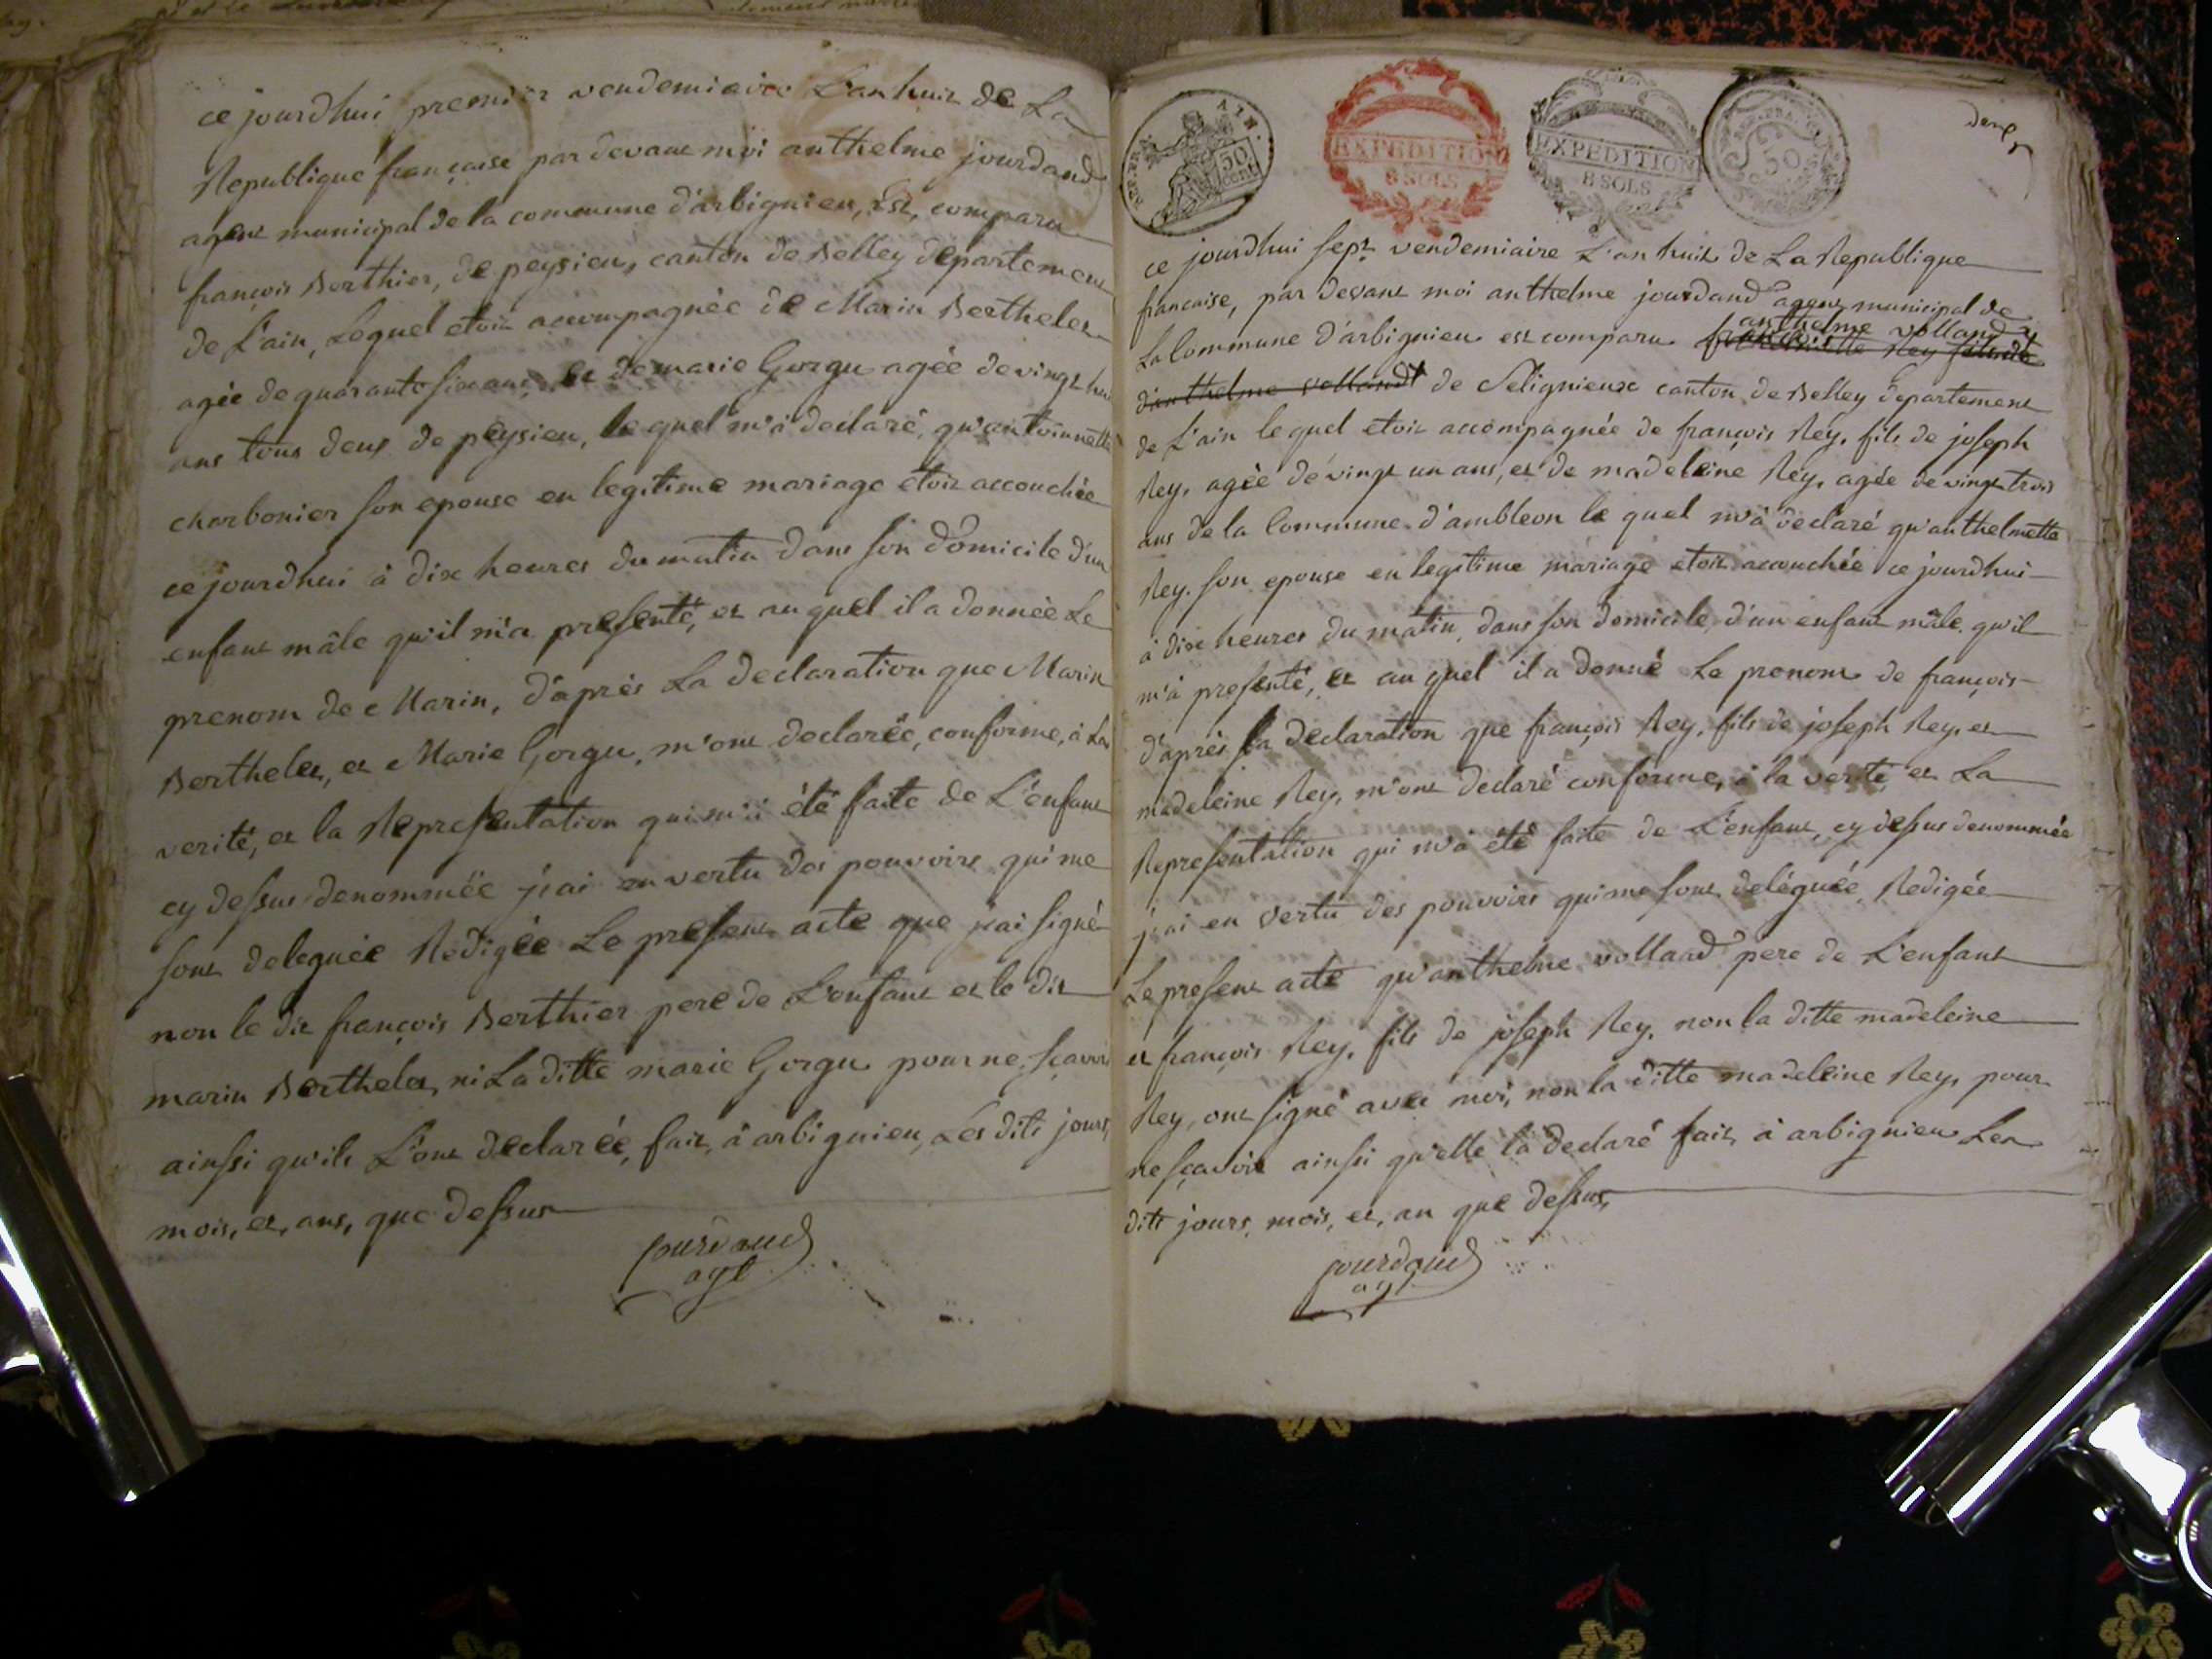 ce jourdhui premier vendemiaire L'an huit de La
Republique française par devant moi anthelme jourdand
agent municipal de la commune d'arbignieu, Est, comparu
françois Berthier, de peysieu, canton de Belley departement
de L'ain, Lequel etoit accompagnée de Marin Berthelet
agée de quarante six ans, et de marie Gorgu agée de vingt huit
ans tous deux de peysieu, le quel m'a declaré, qu'antoinnette
charbonier son epouse en legitime mariage etoit accouchée
ce jourdhui à dix heures du matin dans son domicile d'un
enfant mâle qu'il m'a presenté, et au quel il a donnée Le
prenom de Marin, d'après La declaration que Marin
Berthelet, et Marie Gorgu, m'ont declarée, conforme, à La
verité, et la Representation qui m'a été faite de L'enfant
cy dessus denommée j'ai en vertu des pouvoirs qui me
sont deleguée Redigée Le present acte que j'ai signé
non le dit françois Berthier pere de L'enfant et le dit
marin Berthelet, ni La ditte marie Gorgu pour ne sçavoir
ainssi qu'ils L'ont declarée, fait, à arbignieu, Les dits jours,
mois, et, ans, que dessus
jourdand
agt
REP. FRA. AIN.
50 cent
EXPEDITION
8 SOLS
EXPEDITION
8 SOLS
REP. FRA.
50
deux
ce jourdhui sept vendemiaire L'an huit de La Republique
francaise, par devant moi anthelme jourdand agent municipal de
anthelme volland
La Commune d'arbignieu est comparu françoise Rey fils de
d'anthelme vollandt de Selignieux canton de Belley departement
de L'ain le quel etoit accompagnée de françois Rey, fils de joseph
Rey, agée de vingt un ans, et de madeleine Rey, agée de vingt trois
ans de la Commune d'ambleon le quel m'a declaré qu'anthelmette
Rey son epouse en legitime mariage etoit accouchée ce jourdhui
à dix heures du matin, dans son domicile, d'un enfant mâle qu'il
m'a presenté, et au quel il a donné Le prenom de françois
d'après la declaration que françois Rey, fils de joseph Rey, et
madeleine Rey, m'ont declaré conforme, à la verité, et La
Representation qui m'a été faite de L'enfant, cy dessus denommée
j'ai en vertu des pouvoirs qui me sont deléguée, Redigée
Le present acte qu'anthelme volland pere de L'enfant
et françois Rey, fils de joseph Rey, non la ditte madeleine
Rey, ont signé avec moi, non la ditte madeleine Rey, pour
ne sçavoir ainssi qu'elle l'a declaré fait, à arbignieu Les
dits jours, mois, et, an que dessus,
jourdand
agt